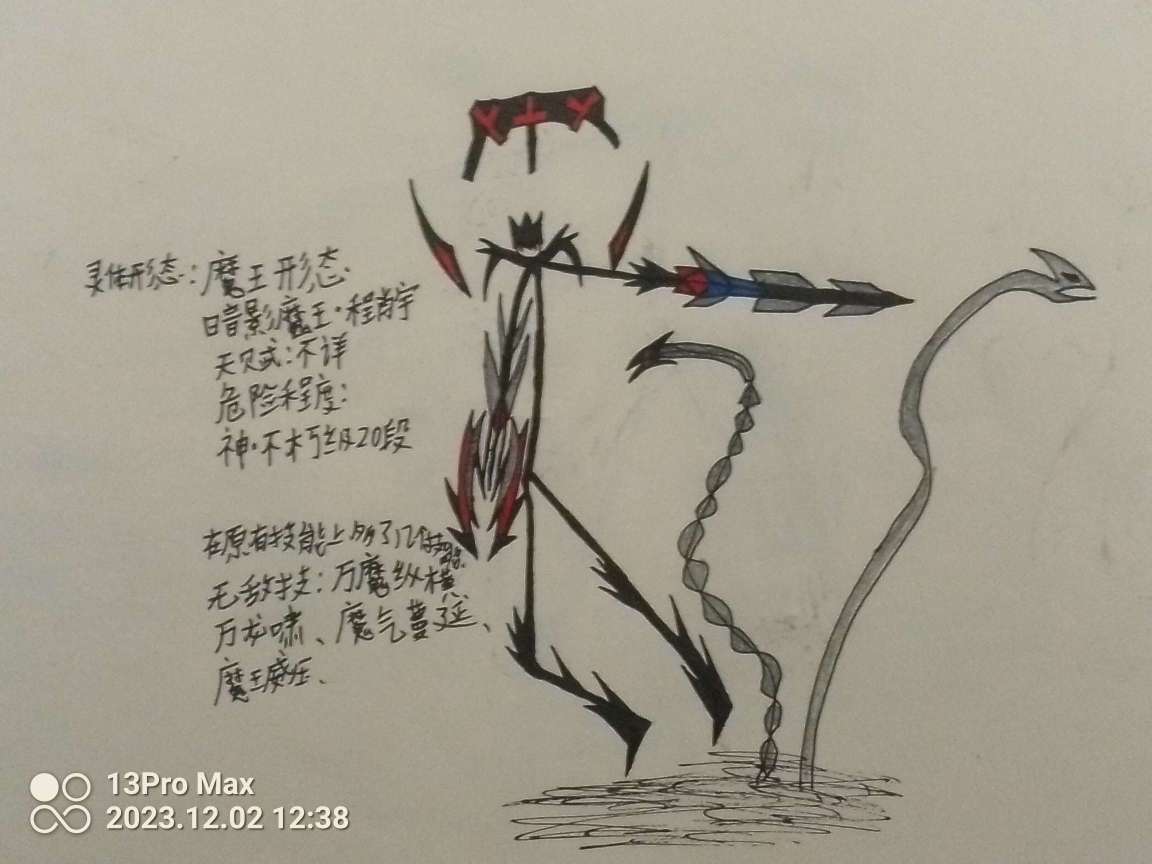 灵体形态:魔王形态.
暗影魔王·程肖宇
天贝式:不详
危险程度:
神·不朽级20段
在原有技能上多了几个技能
无敌技:万魔纵横、
万龙啸、魔气蔓延、
魔王威压、
13Pro Max
2023.12.02 12:38